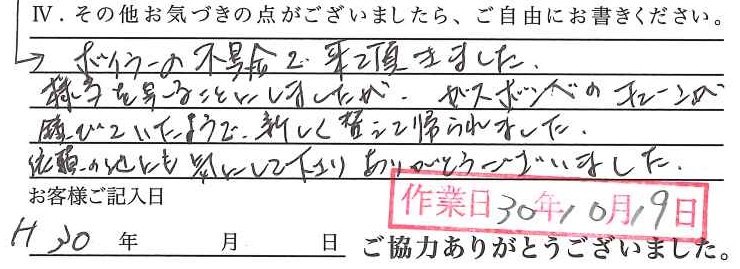 Ⅳ．その他お気づきの点がございましたら、ご自由にお書きください。
→ボイラーの不具合で来て頂きました。
様子を見ることにしましたが、ガスボンベのチェーンが
錆びていたようで、新しく替えて帰られました。
依頼の他にも気にして下さりありがとうございました。
お客様ご記入日
作業日30年10月19日
H30年 月 日 ご協力ありがとうございました。